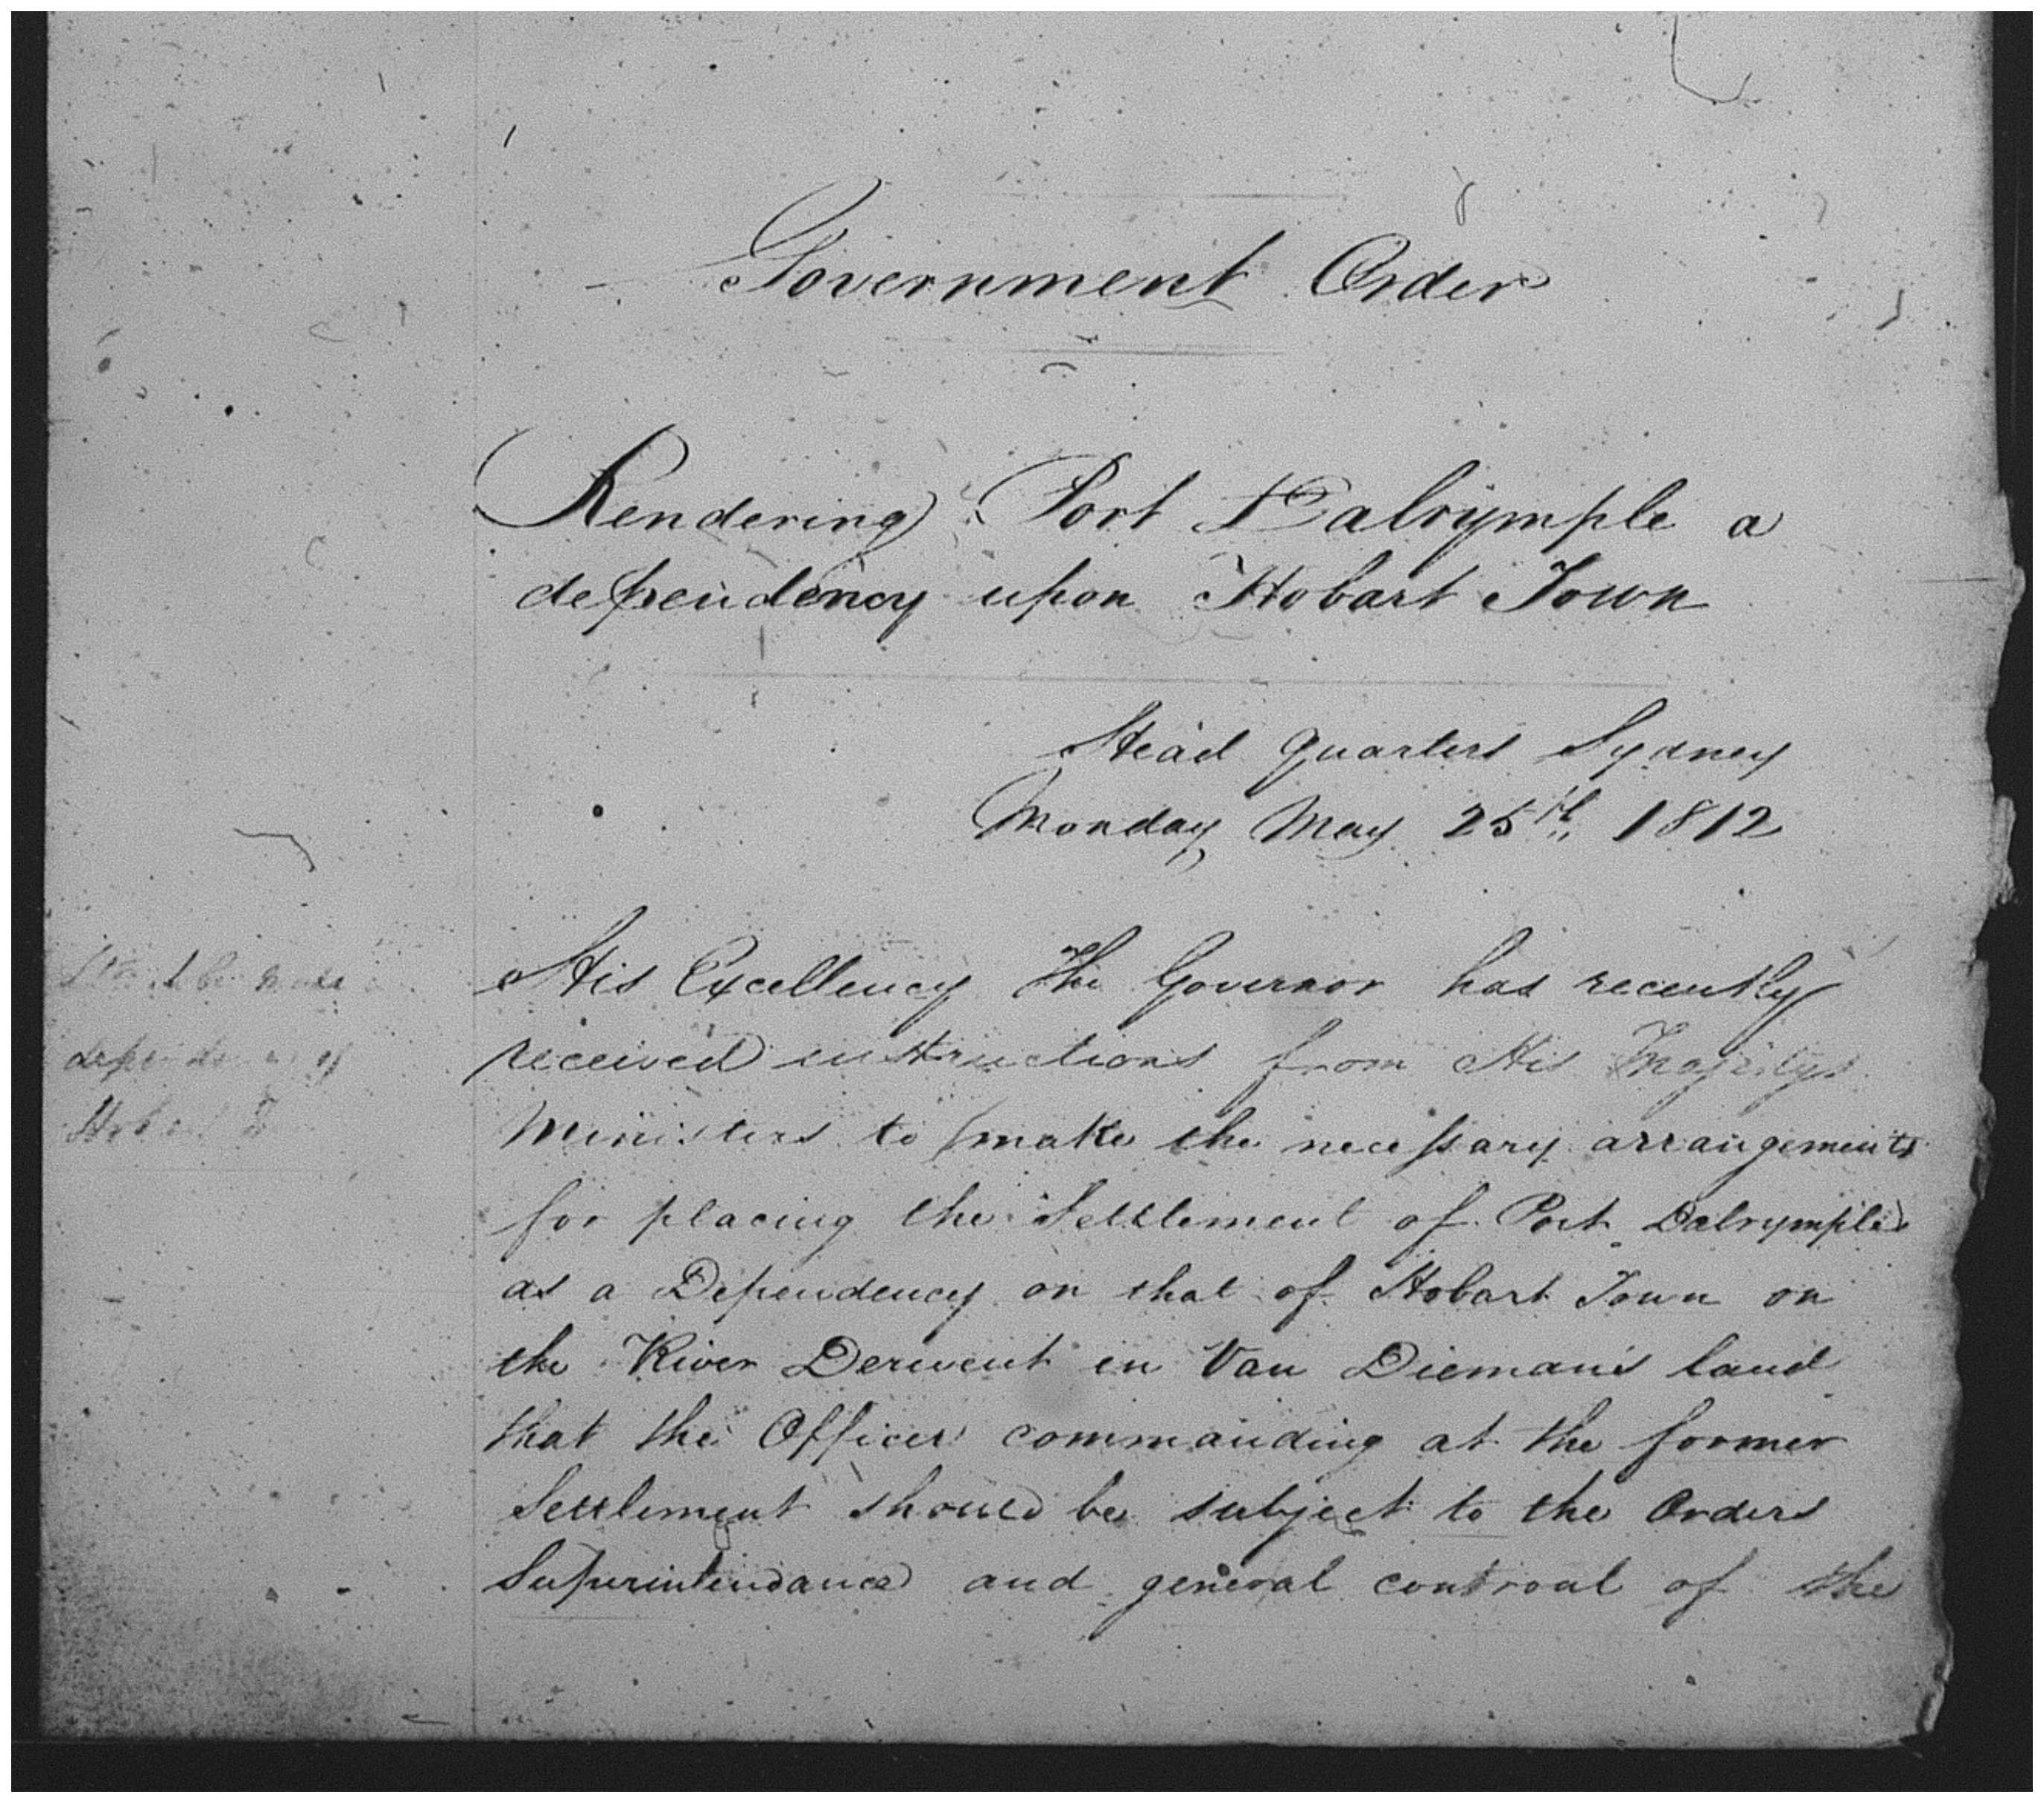 Government Order
Rendering Port Dalrymple a
dependency upon Hobart Town
Head Quarters Sydney
Monday May 25th 1812
His Excellency The Governor has recently
received instructions from His Majestys
Ministers to make the necessary arrangements
for placing the Settlement of Port Dalrymple
as a Dependency on that of Hobart Town on
the River Derwent in Van Diemans land
that the Officer commanding at the former
Settlement should be subject to the Orders
Superintendance and general controul of the
to be made
dependency
Hobart